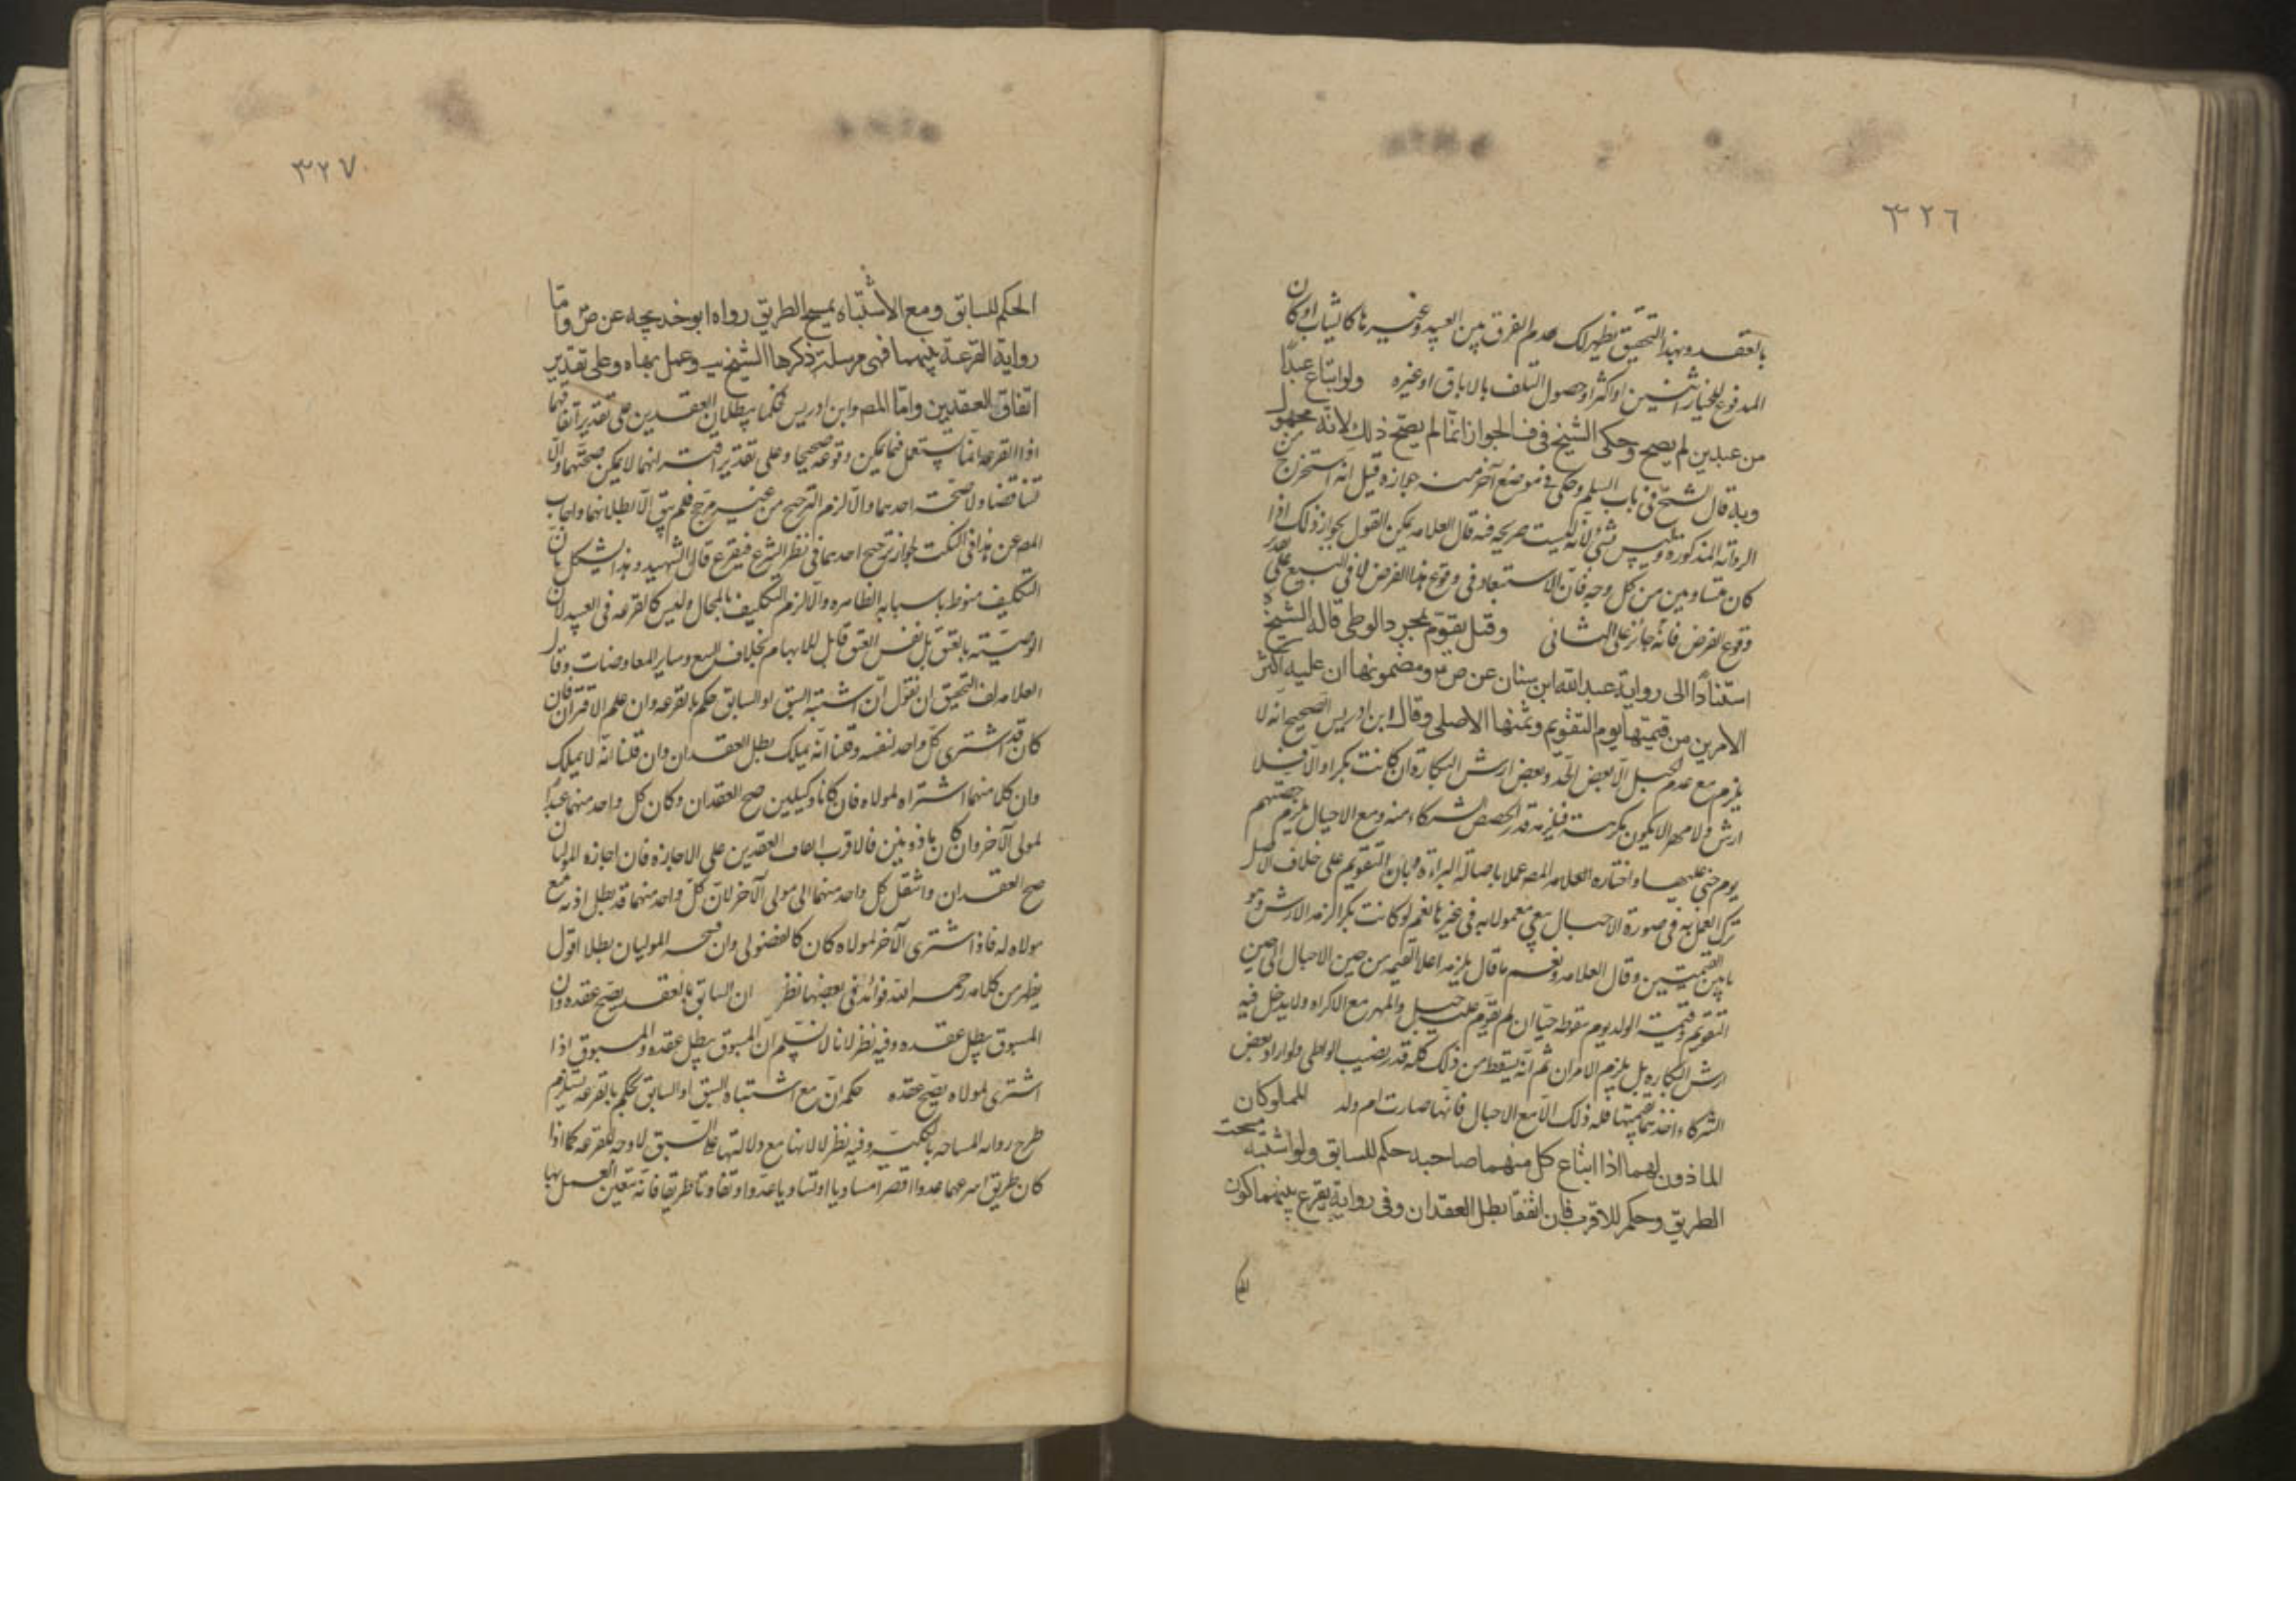 ٣٢٦
بالعقد وبهذا التحقيق يظهر لك عدم الفرق بين العبيد وغيرها كالثياب او كان
المدفوع للخيار اثنين او اكثر او حصول التلف بالاباق او غيره ولو ابتاع عبدًا
من عبدين لم يصح وحكى الشيخ في ف الجواز انما لم يصح ذلك لانه مجهول
وبه قال الشيخ في باب السلم وحكى في موضع آخر منه جوازه قيل انه استخرج من
الرواية المذكورة وليس بشئ لانه ليست صريحة فيه قال العلامه يمكن القول بجواز ذلك اذا
كان متساويين من كل وجه فان الاستبعاد في وقوع هذا الفرض لا في البيع على تقدير
وقوع الفرض فانه جائز على الثاني وقيل يقوم بمجرد الوطى قاله الشيخ ره
استنادًا الى رواية عبد الله ابن سنان عن ص ومضمونها ان عليه اكثر
الامرين من قيمتها يوم التقويم وثمنها الاصلى وقال ابن ادريس الصحيح انه لا
يلزم مع عدم الحبل الا بعض الحد وبعض ارش البكارة ان كانت بكرا والا فلا
ارش ولا مهر الا يكون مكرهة فيلزمه قدر حصص الشركاء منه ومع الاحبال يلزم حصتهم
يوم جنى عليها واختاره العلامه المص عملا باصالة البراءة وبان التقويم على خلاف الاصل
ترك العمل به في صورة الاحبال بقي معمولا به في غيرها نعم لو كانت بكرا لزمه الارش وهو
ما بين القيمتين وقال العلامه ونعم ما قال يلزمه اعلا القيمه من حين الاحبال الى حين
التقويم وقيمة الولد يوم سقوطه حيّا ان لم يقوم عليه حبل والمهر مع الاكراه ولا يدخل فيه
ارش البكاره بل يلزم الامران ثم انه يسقط من ذلك كله قدر نصيب الواطى ولو اراد بعض
الشركاء اخذها بقيمتها فله ذلك الا مع الاحبال فانها صارت ام ولد المملوكان
الماذون لهما اذا ابتاع كل منهما صاحبه حكم للسابق ولو اشتبه مسحت
الطريق وحكم للاقرب فان اتفقا بطل العقدان وفي رواية يقرع بينهما كون
٣٢٧
الحكم للسابق ومع الاشتباه يمسح الطريق رواه ابو خديجه عن ص واما
رواية القرعة بينهما فهى مرسلة ذكرها الشيخ يب وعمل بها ه وعلى تقدير
اتفاق العقدين واما المص وابن ادريس فحكما ببطلان العقدين على تقدير اتفاقهما
اذ القرعه انما تستعمل فيما يمكن وقوعه صحيحا وعلى تقدير اقترانهما لا يمكن صحتهما والا
تناقضا ولا صحة احدهما والا لزم الترجيح من غير مرجح فلم يبق الا بطلانهما واجاب
المص عن هذا في النكت بجواز ترجيح احدهما في نظر الشرع فيقرع قال الشهيد وهذا يشكل بان
التكليف منوط باسبابه الظاهره والا لزم التكليف بالمحال وليس كالقرعه في العبيد لان
الوصيته بالعتق بل نفس العتق قابل للابهام بخلاف البيع وساير المعاوضات وقال
العلامه لف التحقيق ان نقول ان اشتبه السبق او السابق حكم بالقرعه وان علم الاقتران فان
كان قد اشترى كل واحد لنفسه وقلنا انه يملك بطل العقدان وان قلنا انه لا يملك
وان كلا منهما اشتراه لمولاه فان كانا وكيلين صح العقدان وكان كل واحد منهما عبدًا
لمولى الآخر وان كان ماذونين فالاقرب ايقاف العقدين على الاجازه فان اجازه الموليان
صح العقدان وانتقل كل واحد منهما الى مولى الآخر لان كل واحد منهما قد بطل اذنه مع
مولاه له فاذا اشترى الآخر لمولاه كان كالفضولى وان فسخ الموليان بطلا اقول
يظهر من كلامه رحمه الله فوائد في بعضها نظر ان السابق بالعقد يصح عقده وان
المسبوق يبطل عقده وفيه نظر لانا لا نسلم ان المسبوق يبطل عقده والمسبوق اذا
اشترى لمولاه يصح عقده حكم ان مع اشتباه السبق او السابق يحكم بالقرعه يستلزم
طرح رواية المساحه بالكلية وفيه نظر لانها مع دلالتها على السبق لا وجه للقرعه كما اذا
كان طريق اسرعهما عدوا اقصر او تساويا عدوا وتفاوتا طريقا فانه يتعين العمل بها